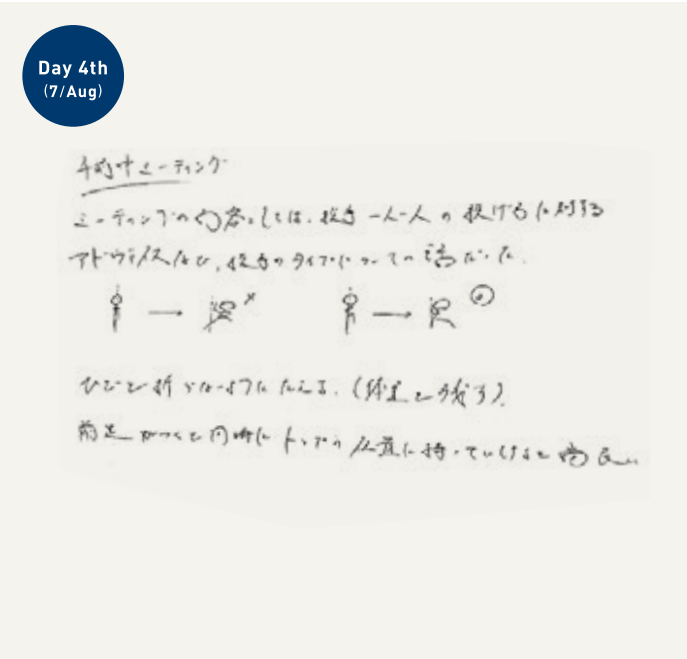 Day 4th
(7/Aug)
ミーティング
ミーティングの内容としては、投手一人一人の投げ方に対する
アドヴァイス及び、投手のタイプについての話だった。
ひざを折らないようにたえる。(体重を残す)。
前足がつくと同時にトップの位置に持っていけると尚良い。